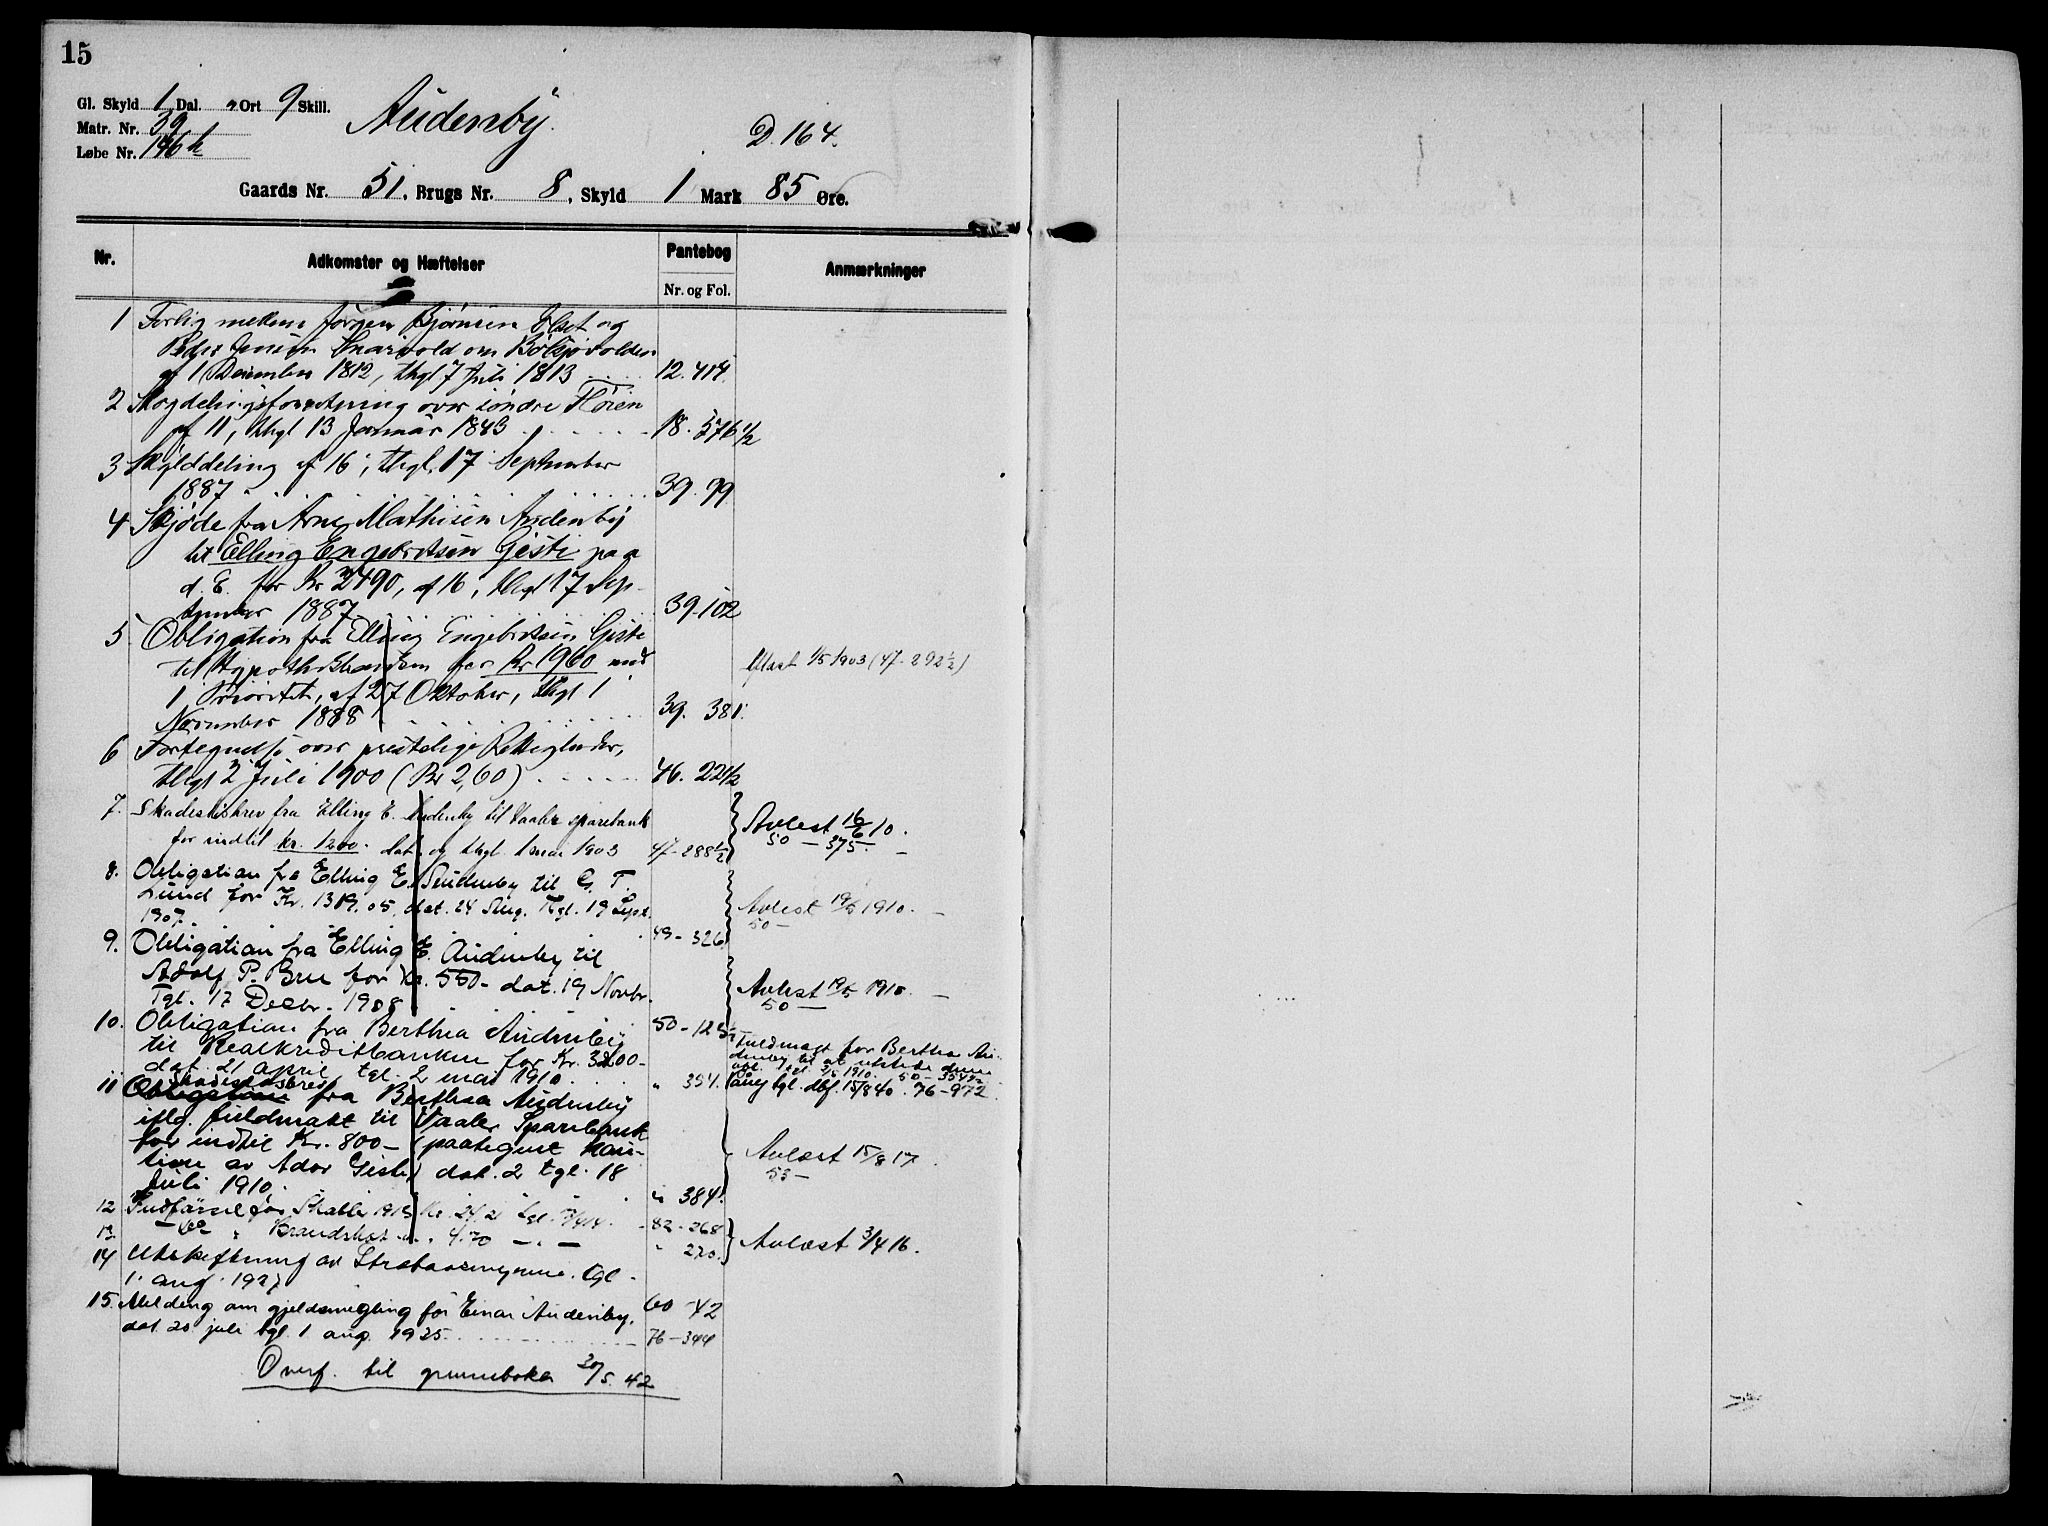 15
Gl. Skyld 1 Dal. " Ort 9 Skill.
Matr. Nr. 39
Løbe Nr. 146 h
Audenby.
D. 164.
Gaards Nr. 51, Brugs Nr. 8, Skyld 1 Mark 85 Øre.
Nr.
Adkomster og Hæftelser
Pantebog
Nr. og Fol.
Anmærkninger
1 Forlig mellem Jørgen Bjørnsen og
Peder Jensen om
af 1 Desember 1812, thgl 7 Juli 1813 12. 414.
2 Skogdelingsforretning over søndre Fløien
af 11, thgl 13 Januar 1843 18. 576 1/2
3 Skylddeling af 16, thgl. 17 September
1887 39. 99
4 Skjøde fra Arne Mathisen Audenby
til Elling Engebretsen Gjeste paa
d. E. for Kr 2490, af 16, thgl 17 Sep-
tember 1887 39. 102
5 Obligation fra Elling Engebretsen Gjeste
til Hypothekbanken for Kr 1960 med
1 Prioritet, af 27 Oktober, thgl 1
November 1888 39. 381.
Udlast 1/5 1903 (47-292 1/2)
6 Fortegnelse over prestelige Rettigheder,
thgl 2 Juli 1900 (Kr 2,60) 46. 221/2
7. Skadesløsbrev fra Elling E. Audenby til Vaaler sparebank
for indtil kr. 1200. dat. og thgl. 1 mai 1903 47-288 1/2
Avlest 16/6 10.
50 — 375. —
8. Obligation fra Elling E. Audenby til G. T.
Lund for Kr. 1319.05, dat. 24 Aug. Tgl. 19 Sept.
1907. 49-326
Avlest 19/5 1910. —
50 —
9. Obligation fra Elling E. Audenby til
Adolf P. Bru for Kr. 550- dat. 19 Novbr.
Tgl. 17 Decbr. 1908 50-125
Avlest 19/5 1910. —
50 —
10. Obligation fra Berthea Audenby
til Realkreditbanken for Kr. 3200-
dat. 21 april, tgl. 2 mai 1910 " 354.
Fuldmagt for Berthea Au-
denby til at utstede denne
obl. tgl. 2/5 1910. 50-354 1/2
tgl. dbf. 15/8 40. 76-972.
11 Obligation Skadesløsbrev fra Berthea Audenby
iflg. fuldmakt til Vaaler Sparebank
for indtil Kr. 800— (paategnet kau-
tion av Ador Gjeste) dat. 2 tgl. 18
Juli 1910. " 384.
Avlæst 15/8 17.
53 —
12 Utpantn. for Skatter 1913 Kr. 24.21 tgl. 7/4 14. - 52-268
13 — do " Brandskat " " 4.70 — " — " 270.
Avlæst 3/4 16.
14 Utskiftning av Strabaasengene. tgl.
1. aug. 1927 60-42
15. Melding om gjeldsmegling for Einar Audenby,
dat. 20. juli tgl. 1. aug. 1935. 76-344
Overf. til grunnboka 20/5. 42